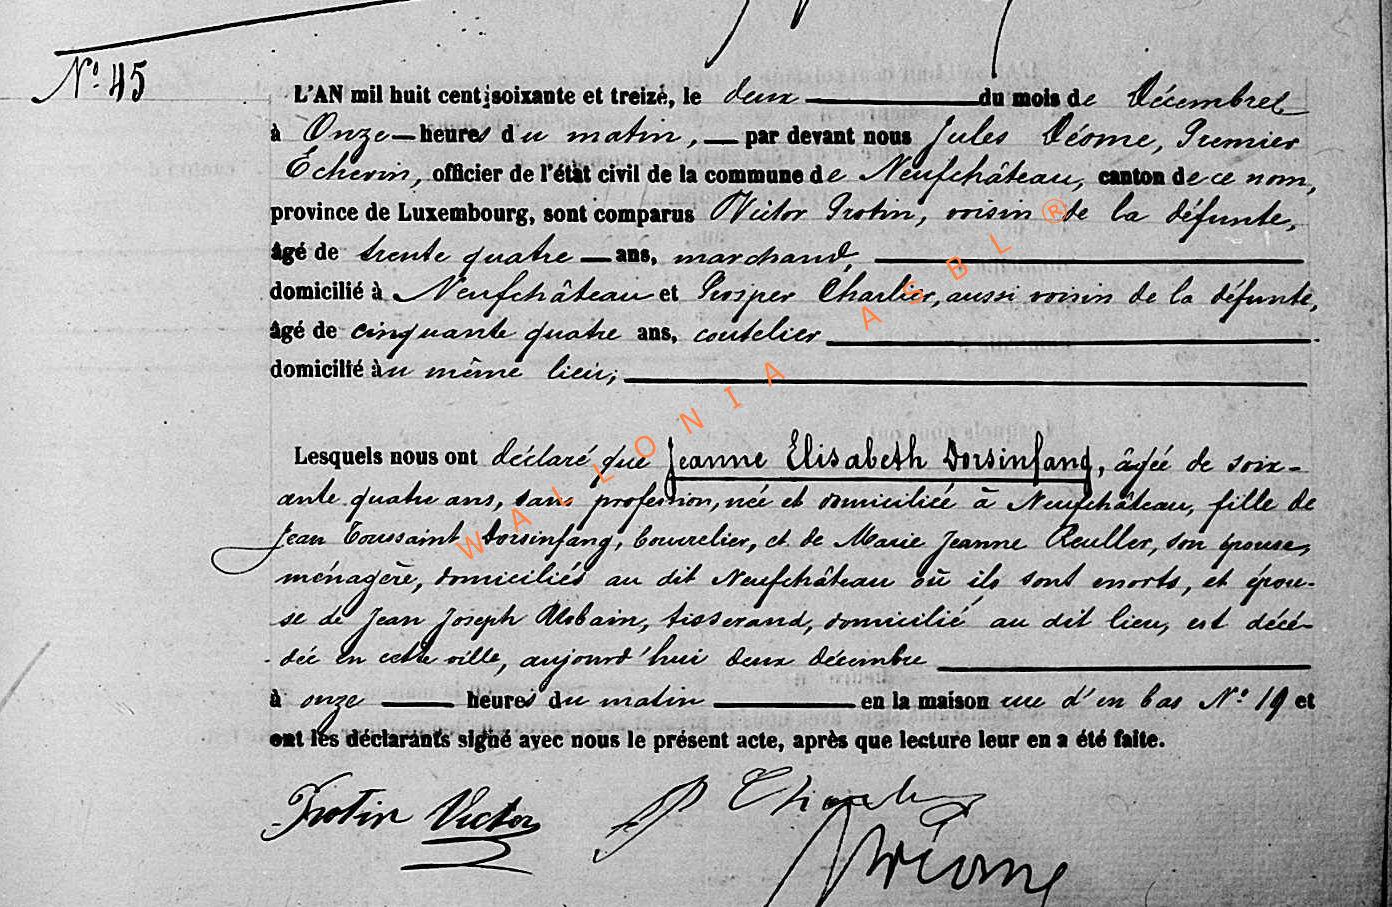 N° 45
L'AN mil huit cent soixante et treize, le deux du mois de Décembre
à Onze heures du matin, par devant nous Jules Déome, Premier
Echevin, officier de l'état civil de la commune de Neufchâteau, canton de ce nom,
province de Luxembourg, sont comparus Victor Trotin, voisin de la défunte,
âgé de trente quatre ans, marchand,
domicilié à Neufchâteau et Prosper Charlier, aussi voisin de la défunte,
âgé de cinquante quatre ans, coutelier
domicilié au même lieu;
Lesquels nous ont déclaré que Jeanne Elisabeth Dorsinfang, âgée de soix-
ante quatre ans, sans profession, née et domiciliée à Neufchâteau, fille de
Jean Toussaint Dorsinfang, bourrelier, et de Marie Jeanne Reuller, son épouse,
ménagère, domiciliés au dit Neufchâteau où ils sont morts, et épou-
se de Jean Joseph tisserand, domicilié au dit lieu, est décé-
dée en cette ville, aujourd'hui deux décembre
à onze heures du matin en la maison rue d'en bas N° 19 et
ont les déclarants signé avec nous le présent acte, après que lecture leur en a été faite.
Trotin Victor P Charlier
Déome
WALLONIA ASBL ®